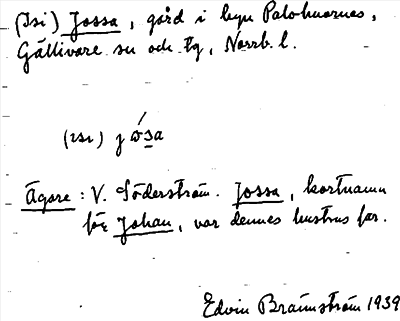 (Isi) Jossa, gård i byn Palohuornas,
Gällivare sn och tg, Norrb. l.
(ısı)
Ägare: V. Söderström. Jossa, kortnamn
för Johan, var dennes hustrus far.
Edvin Brännström 1939